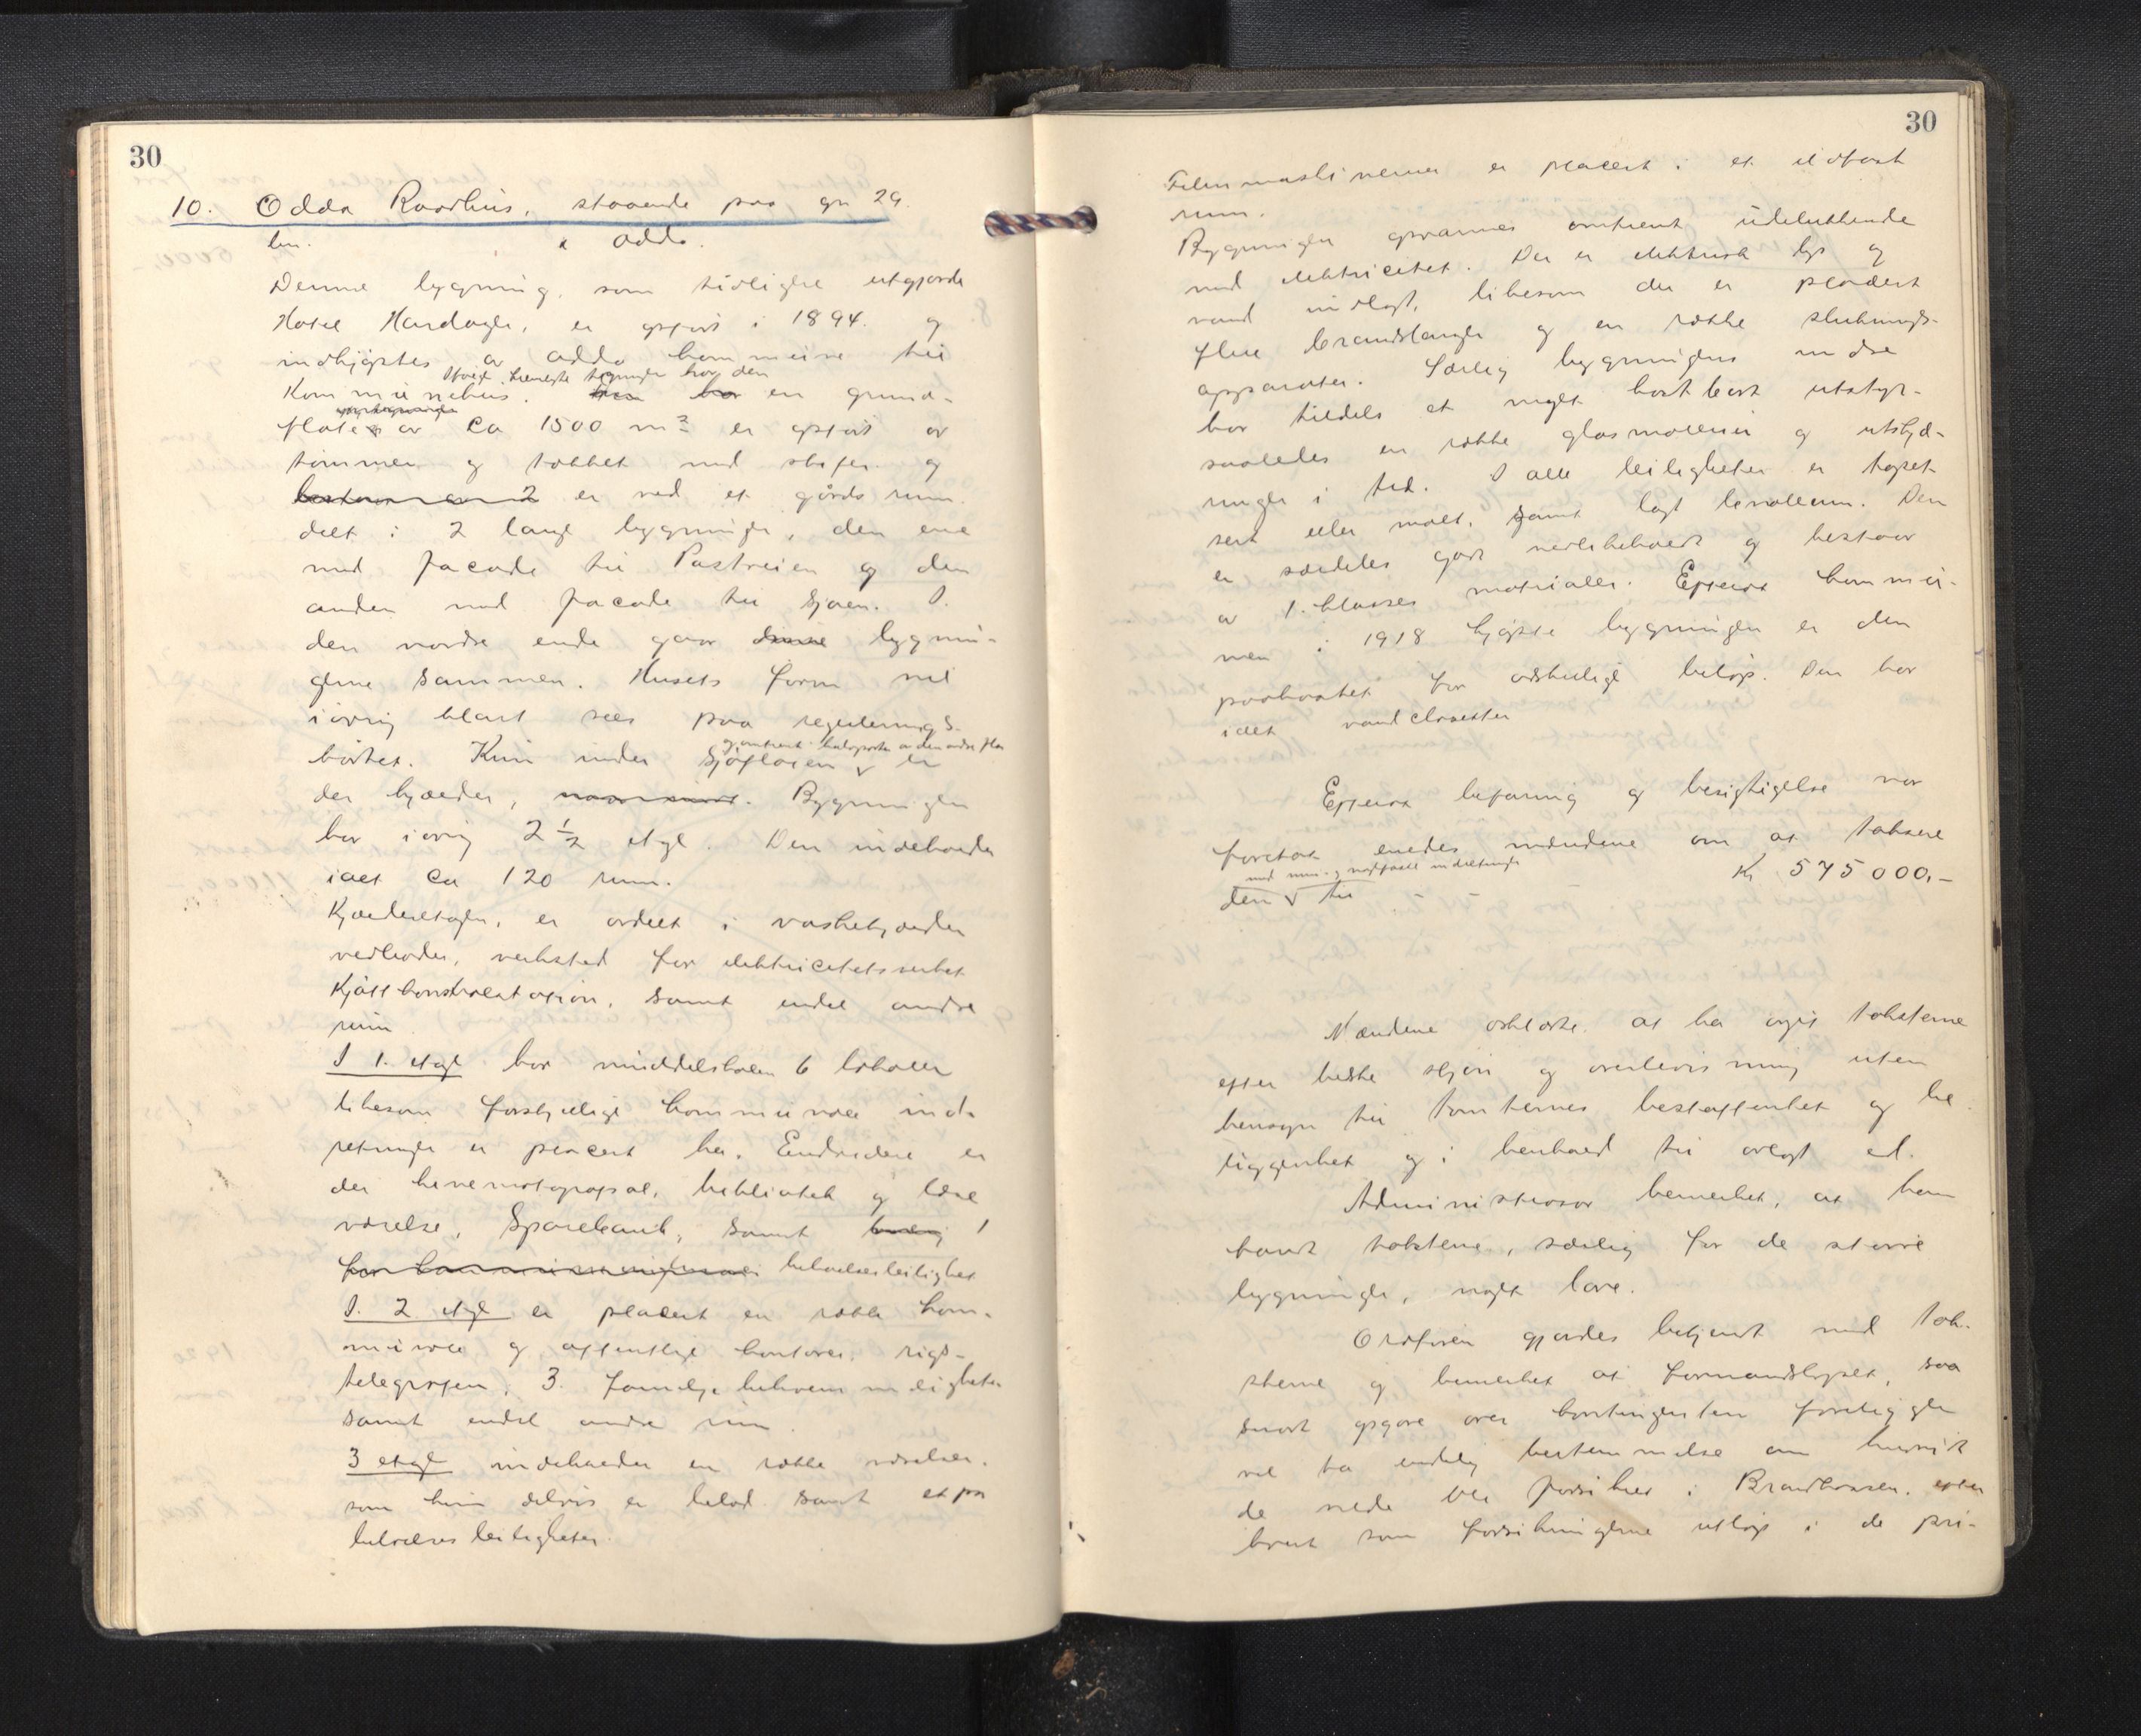 30
10. Odda Raadhus, staaende paa gn 29.
bn. i Odda.
Denne bygning, som tidligere utgjorde
Hotel Hardanger, er opført i 1894. og
indkjøptes av Odda kommune til
Kommunehus. Ifølge tegninger har den en grund-
flate av Ca 1500 m2 er opført av
tømmer og tækket med skifer og
bestaar av 2 er ved et gårds rum
delt i 2 lange bygninger, den ene
med facade til Postveien og den
anden med facade til sjøen. I
den nordre ende gaar denne bygnin-
gerne sammen. Husets form vil
iøvrig klart sees paa regulerings-
kartet. Kun under sjøfløien og omtrent halvparten av den andre fløi er
der kjælder, . Bygningen
har iøvrig 2 1/2 etage. Den indeholder
ialt Ca 120 rum.
Kjælderetagen, er avdelt i vaskekjælder
vedboder, verksted for elektricitetsverket
Kjøttkontrolstation, samt endel andre
rum
I 1. etage har middelskolen 6 lokaler
likesom forskjellige kommunale ind-
retninger er placert her. Endvidere er
der kinematografsal, bibliotek og læse
værelse, Sparebank, samt 1
beboelsesleilighet
I. 2 etage er placert en række kom-
munale og offentlige kontorer, rigs-
telegrafen, 3. familje beboelsesleiligheter
samt endel andre rum
3 etage indeholder en række værelser.
som kun delvis er bebod samt et par
beboelses leiligheter.
30
Filmmaskinerne er placert i et ildfast
rum.
Bygningen opvarmes omtrent udelukkende
med elektricitet. Der er elektrisk lys og
vand indlagt, likesom der er placert
flere brandslanger og en række sluknings-
apparater. Særlig bygningens indre
har tildels et meget kostbart utstyr-
saaledes en række glasmalerier og utskjæ-
ringer i træ. I alle leiligheter er tapet-
sert eller malt, samt lagt linoleum. Den
er særdeles godt vedlikeholdt og bestaar
av 1. klasses materialer. Efterat kommu-
nen i 1918 kjøpte bygningen er den
paakostet for adskillige beløp. Den har
ialt vandclosetter
Efterat befaring og besigtigelse var
foretat enedes mændene om at taksere
den med mur- og nagfaste indretninger til Kr 575000,-
Mændene erklærte at ha avgit taksterne
efter bedste skjøn og overbevisning uten
hensyn til tomternes beskaffenhet og be-
liggenhet og i henhold til avlagt ed.
Administrator bemerket, at han
fandt takstene, særlig for de større
bygninger, noget lave.
Ordføren gjordes bekjendt med tak-
sterne og bemerket at formandskapet, saa
snart opgave over kontingenten foreligger
vil ta endelig bestemmelse om hvorvidt
de vilde bli forsikret i Brandkassen, efter
hvert som forsikringerne utløp i de pri-